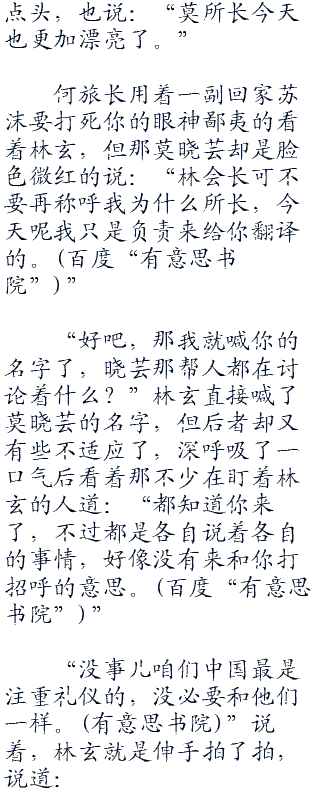 点头，也说：“莫所长今天
也更加漂亮了。”
何旅长用着一副回家苏
沫要打死你的眼神鄙夷的看
着林玄，但那莫晓芸却是脸
色微红的说：“林会长可不
要再称呼我为什么所长，今
天呢我只是负责来给你翻译
的。(百度“有意思书
院”)”
“好吧，那我就喊你的
名字了，晓芸那帮人都在讨
论着什么？”林玄直接喊了
莫晓芸的名字，但后者却又
有些不适应了，深呼吸了一
口气后看着那不少在盯着林
玄的人道：“都知道你来
了，不过都是各自说着各自
的事情，好像没有来和你打
招呼的意思。(百度“有意思
书院”)”
“没事儿咱们中国最是
注重礼仪的，没必要和他们
一样。(有意思书院)”说
着，林玄就是伸手拍了拍，
说道：